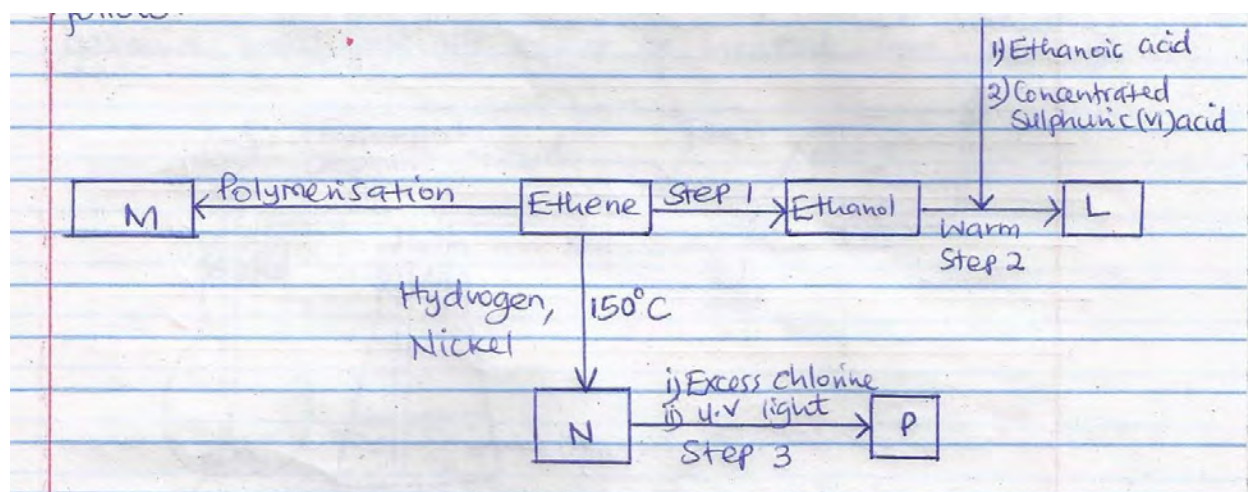 follow
1) Ethanoic acid
2) Concentrated
Sulphuric (VI) acid
M
Polymerisation
Ethene
Step 1
Ethanol
Warm
Step 2
L
Hydrogen,
Nickel
150°C
N
i) Excess chlorine
ii) u.v light
Step 3
P